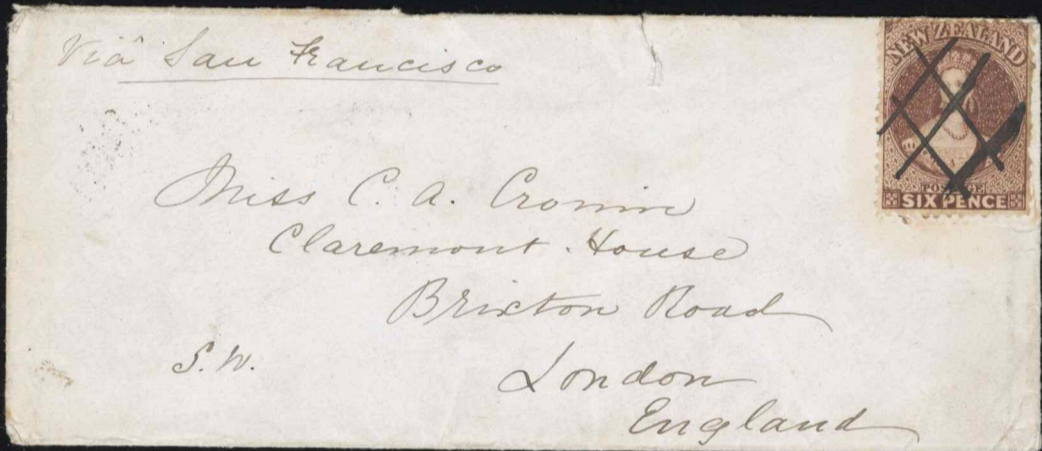 Viâ San Francisco
NEW ZEALAND
POSTAGE
SIX PENCE
Miss C. A. Cronin
Claremont House
Brixton Road
S.W.
London
England